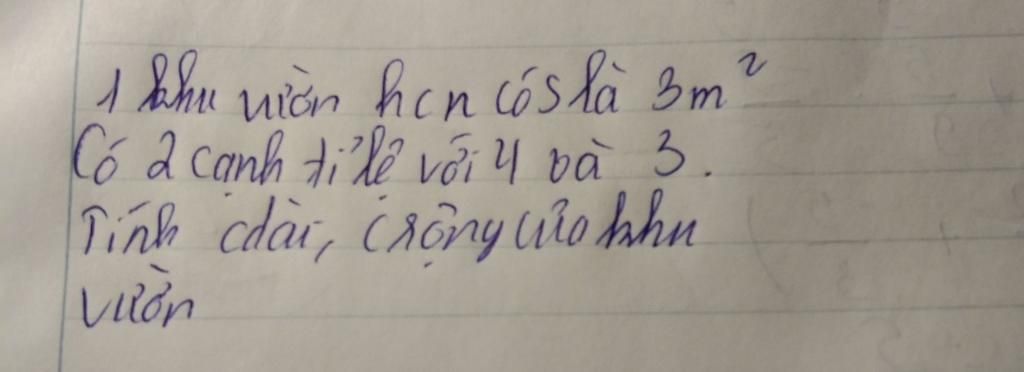 1 khu vườn hcn có S là 3m²
Có 2 cạnh tỉ lệ với 4 và 3.
Tính cdài, crộng của khu
vườn